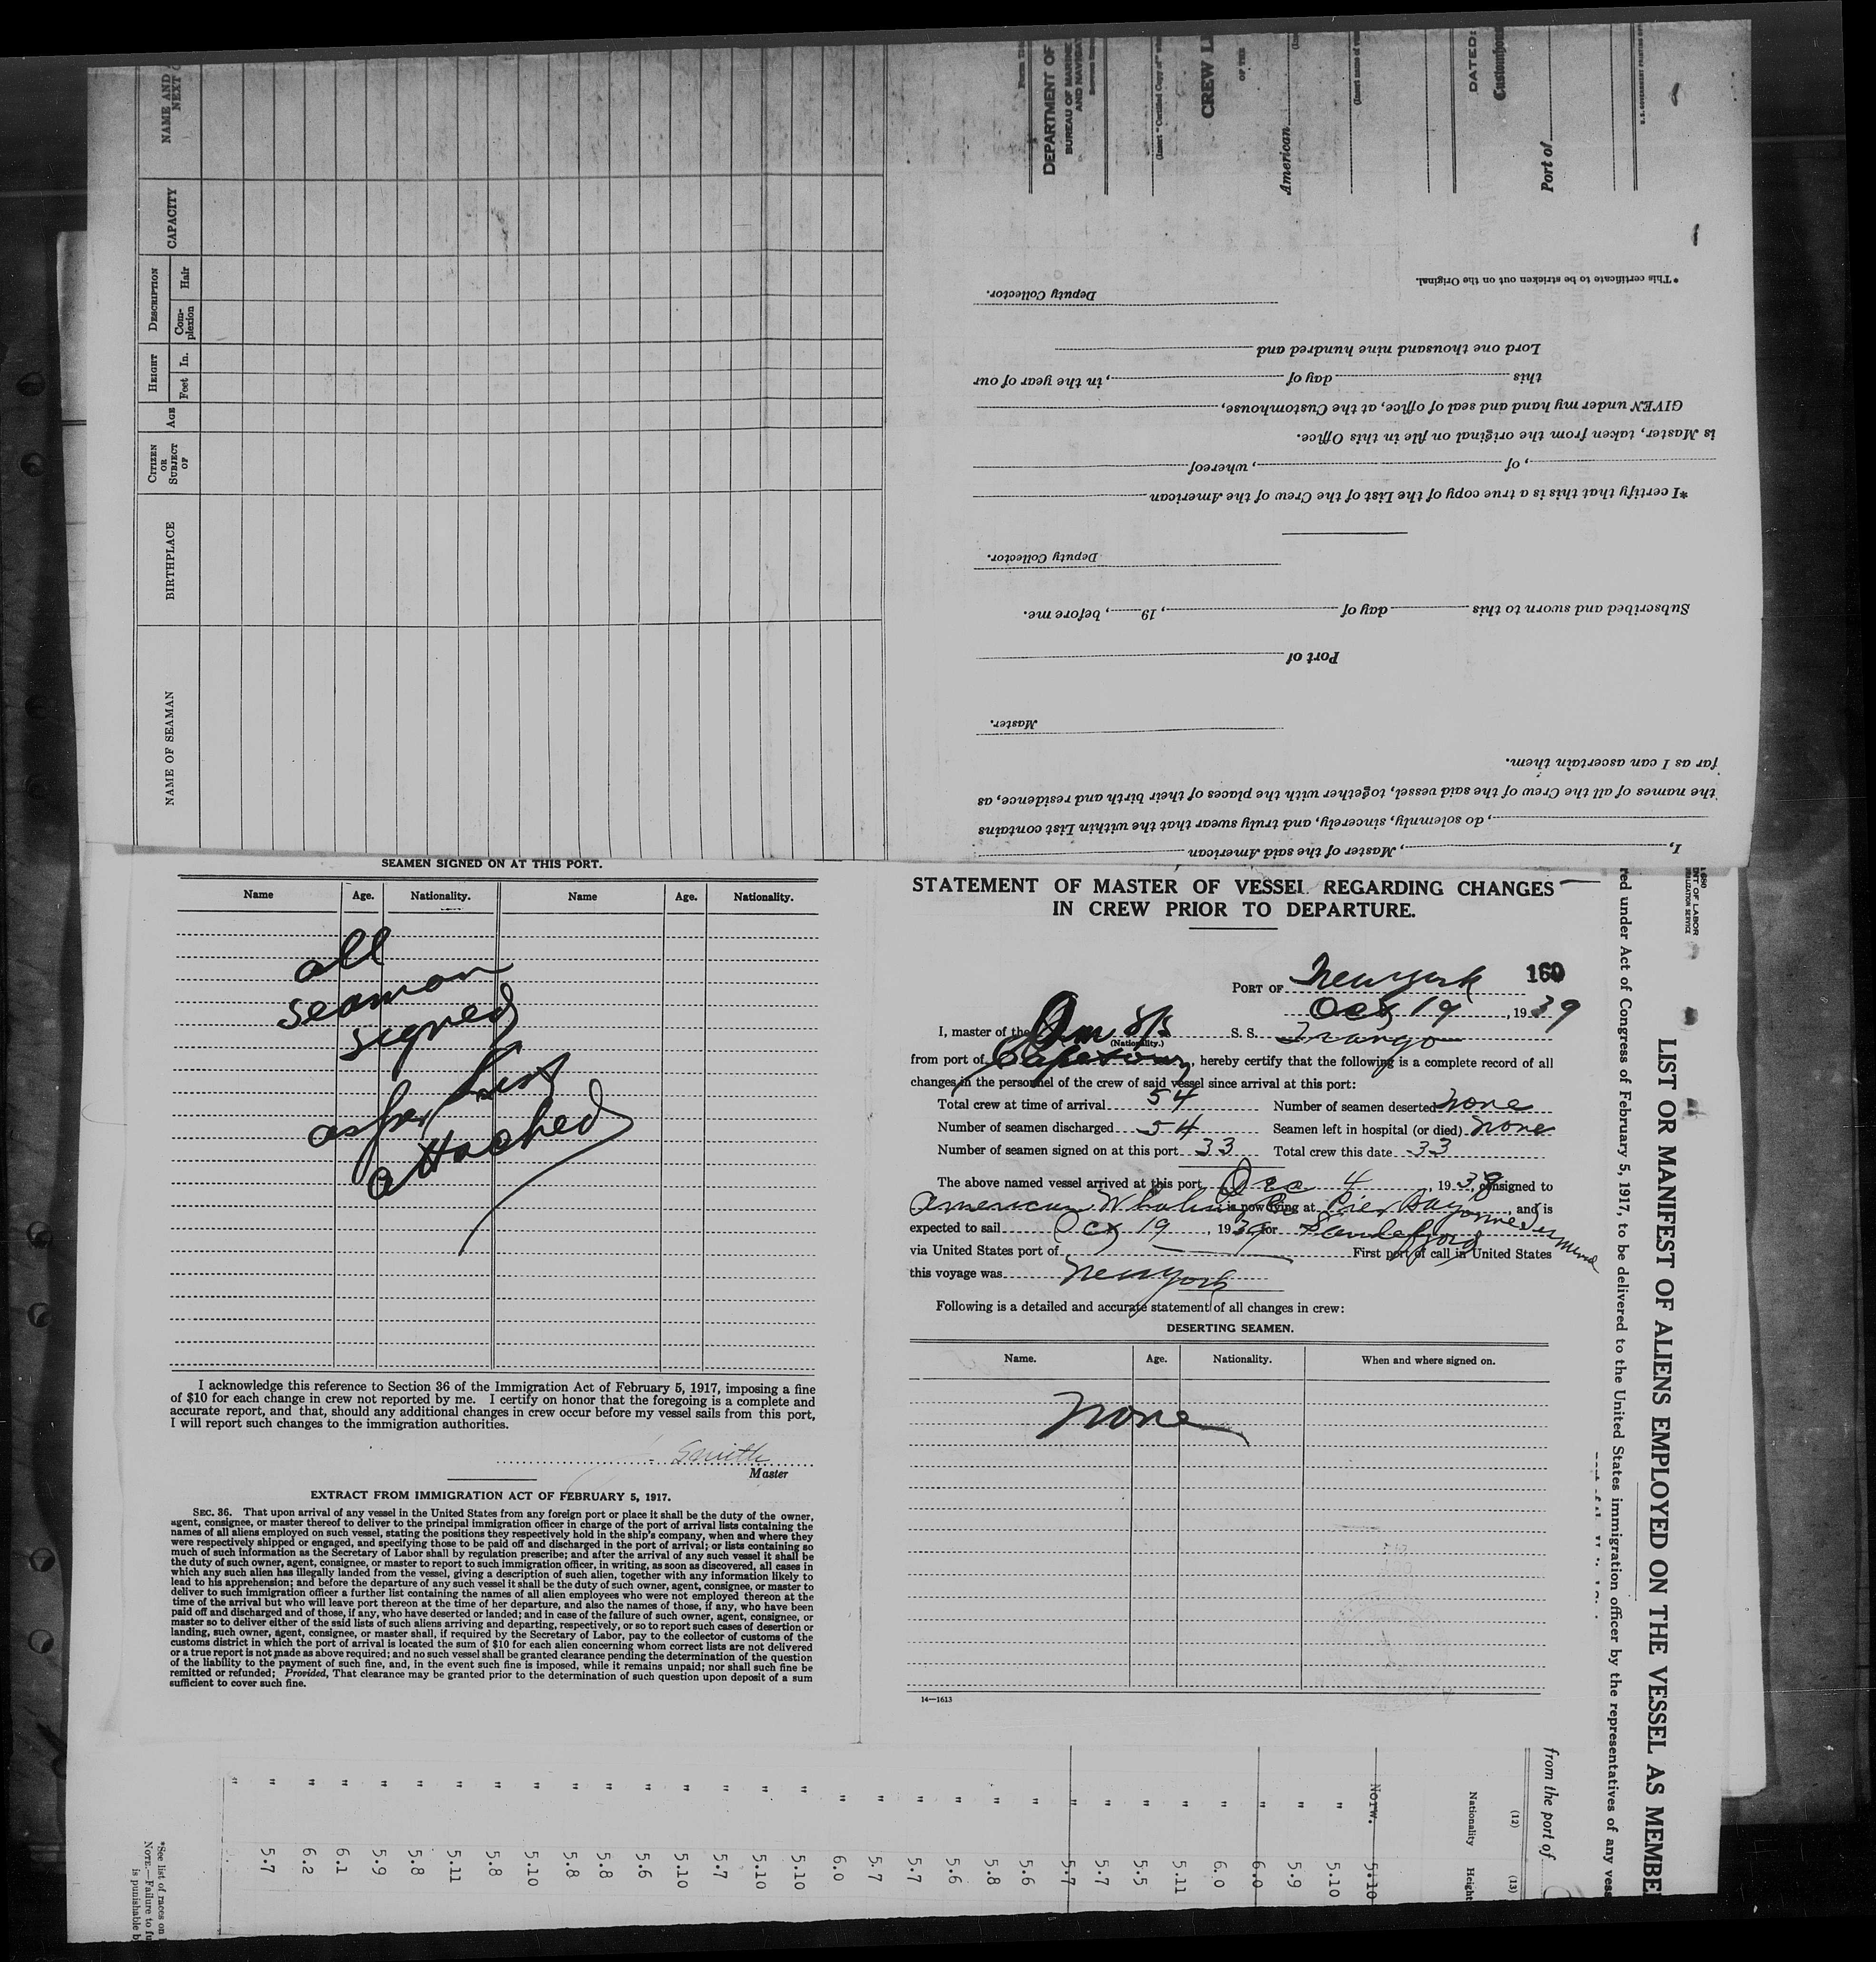 NAME AND
NEXT
CAPACITY
DESCRIPTION
Hair
Com-
plexion
HEIGHT
In.
Feet
AGE
CITIZEN
OR
SUBJECT
OF
BIRTHPLACE
NAME OF SEAMAN
DEPARTMENT OF
BUREAU OF MARINE
AND NAVIGA
CREW LI
OF THE
American
DATED:
Customhous
Port of
I, , Master of the said American
, do solemnly, sincerely, and truly swear that the within List contains
the names of all the Crew of the said vessel, together with the places of their birth and residence, as
far as I can ascertain them.
Master.
Port of
Subscribed and sworn to this day of , 19 , before me.
Deputy Collector.
*I certify that this is a true copy of the List of the Crew of the American
, of , whereof
is Master, taken from the original on file in this Office.
GIVEN under my hand and seal of office, at the Customhouse,
this day of , in the year of our
Lord one thousand nine hundred and
Deputy Collector.
*This certificate to be stricken out on the Original.
SEAMEN SIGNED ON AT THIS PORT.
Name Age. Nationality. Name Age. Nationality.
all
seamon
signed
as per list
attached
I acknowledge this reference to Section 36 of the Immigration Act of February 5, 1917, imposing a fine
of $10 for each change in crew not reported by me. I certify on honor that the foregoing is a complete and
accurate report, and that, should any additional changes in crew occur before my vessel sails from this port,
I will report such changes to the immigration authorities.
Smith
Master
EXTRACT FROM IMMIGRATION ACT OF FEBRUARY 5, 1917.
SEC. 36. That upon arrival of any vessel in the United States from any foreign port or place it shall be the duty of the owner,
agent, consignee, or master thereof to deliver to the principal immigration officer in charge of the port of arrival lists containing the
names of all aliens employed on such vessel, stating the positions they respectively hold in the ship's company, when and where they
were respectively shipped or engaged, and specifying those to be paid off and discharged in the port of arrival; or lists containing so
much of such information as the Secretary of Labor shall by regulation prescribe; and after the arrival of any such vessel it shall be
the duty of such owner, agent, consignee, or master to report to such immigration officer, in writing, as soon as discovered, all cases in
which any such alien has illegally landed from the vessel, giving a description of such alien, together with any information likely to
lead to his apprehension; and before the departure of any such vessel it shall be the duty of such owner, agent, consignee, or master to
deliver to such immigration officer a further list containing the names of all alien employees who were not employed thereon at the
time of the arrival but who will leave port thereon at the time of her departure, and also the names of those, if any, who have been
paid off and discharged and of those, if any, who have deserted or landed; and in case of the failure of such owner, agent, consignee, or
master so to deliver either of the said lists of such aliens arriving and departing, respectively, or so to report such cases of desertion or
landing, such owner, agent, consignee, or master shall, if required by the Secretary of Labor, pay to the collector of customs of the
customs district in which the port of arrival is located the sum of $10 for each alien concerning whom correct lists are not delivered
or a true report is not made as above required; and no such vessel shall be granted clearance pending the determination of the question
of the liability to the payment of such fine, and, in the event such fine is imposed, while it remains unpaid; nor shall such fine be
remitted or refunded; Provided, That clearance may be granted prior to the determination of such question upon deposit of a sum
sufficient to cover such fine.
STATEMENT OF MASTER OF VESSEL REGARDING CHANGES
IN CREW PRIOR TO DEPARTURE.
160
PORT OF New York
Oct 19, 1939
I, master of the Am S/S S. S. Frango
(Nationality.)
from port of Capetown, hereby certify that the following is a complete record of all
changes in the personnel of the crew of said vessel since arrival at this port:
Total crew at time of arrival 54 Number of seamen deserted none
Number of seamen discharged 54 Seamen left in hospital (or died) none
Number of seamen signed on at this port 33 Total crew this date 33
The above named vessel arrived at this port Dec 4, 1938, consigned to
American Whaling Co is now lying at Pier Bayonne, and is
expected to sail Oct 19, 1939 for Sandefjord
via United States port of First port of call in United States
this voyage was New York
Following is a detailed and accurate statement of all changes in crew:
DESERTING SEAMEN.
Name. Age. Nationality. When and where signed on.
none
14—1613
red under Act of Congress of February 5, 1917, to be delivered to the United States immigration officer by the representatives of any vess
LIST OR MANIFEST OF ALIENS EMPLOYED ON THE VESSEL AS MEMBE
from the port of
(12) (13)
Nationality Height
Norw. 5.10
" 5.10
" 5.9
" 6.0
" 6.0
" 5.11
" 5.5
" 5.7
" 5.7
" 5.6
" 5.8
" 5.6
" 5.7
" 5.7
" 6.0
" 5.10
" 5.10
" 5.7
" 5.10
" 5.6
" 5.8
" 5.8
" 5.10
" 5.8
" 5.11
" 5.8
" 5.9
" 6.1
" 6.2
" 5.7
"
*See list of races on
NOTE.—Failure to fu
is punishable b